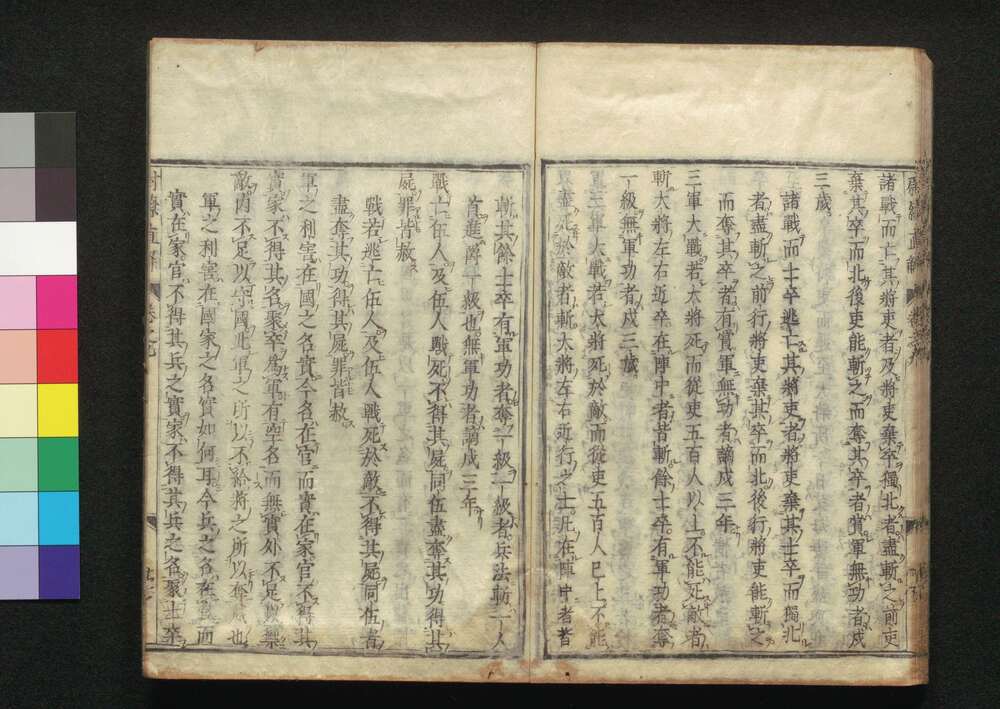 諸戰而亡其將吏者及將吏棄卒獨北者盡斬之前吏
棄其卒而北後吏能斬之而奪其卒者賞軍無功者戍
三歲
諸戰而士卒逃亡其將吏者將吏棄其士卒而獨北
者盡斬之前行將吏棄其卒而北後行將吏能斬之
而奪其卒者有賞軍無功者謫戍三年
三軍大戰若大將死而從吏五百人以上不能死敵者
斬大將左右近卒在陣中者皆斬餘士卒有軍功者奪
一級無軍功者戍三歲
三軍大戰若大將死於敵而從吏五百人已上不能
盡死於敵者斬大將左右近行之士凡在陣中者皆
斬其餘士卒有軍功者奪一級一級者兵法斬一人
首進爵一級也無軍功者謫戍三年
戰亡伍人及伍人戰死不得其屍同伍盡奪其功得其
屍罪皆赦
戰若逃亡伍人及伍人戰死於敵不得其屍同伍者
盡奪其功得其屍罪皆赦
軍之利害在國之名實今名在官而實在家官不得其
實家不得其名聚卒為軍有空名而無實外不足以禦
敵內不足以守國此軍之所以不給將之所以奪威也
軍之利害在國家之名實如何耳今兵之名在官而
實在家官不得其兵之實家不得其兵之名聚士卒
尉繚直解
卷之